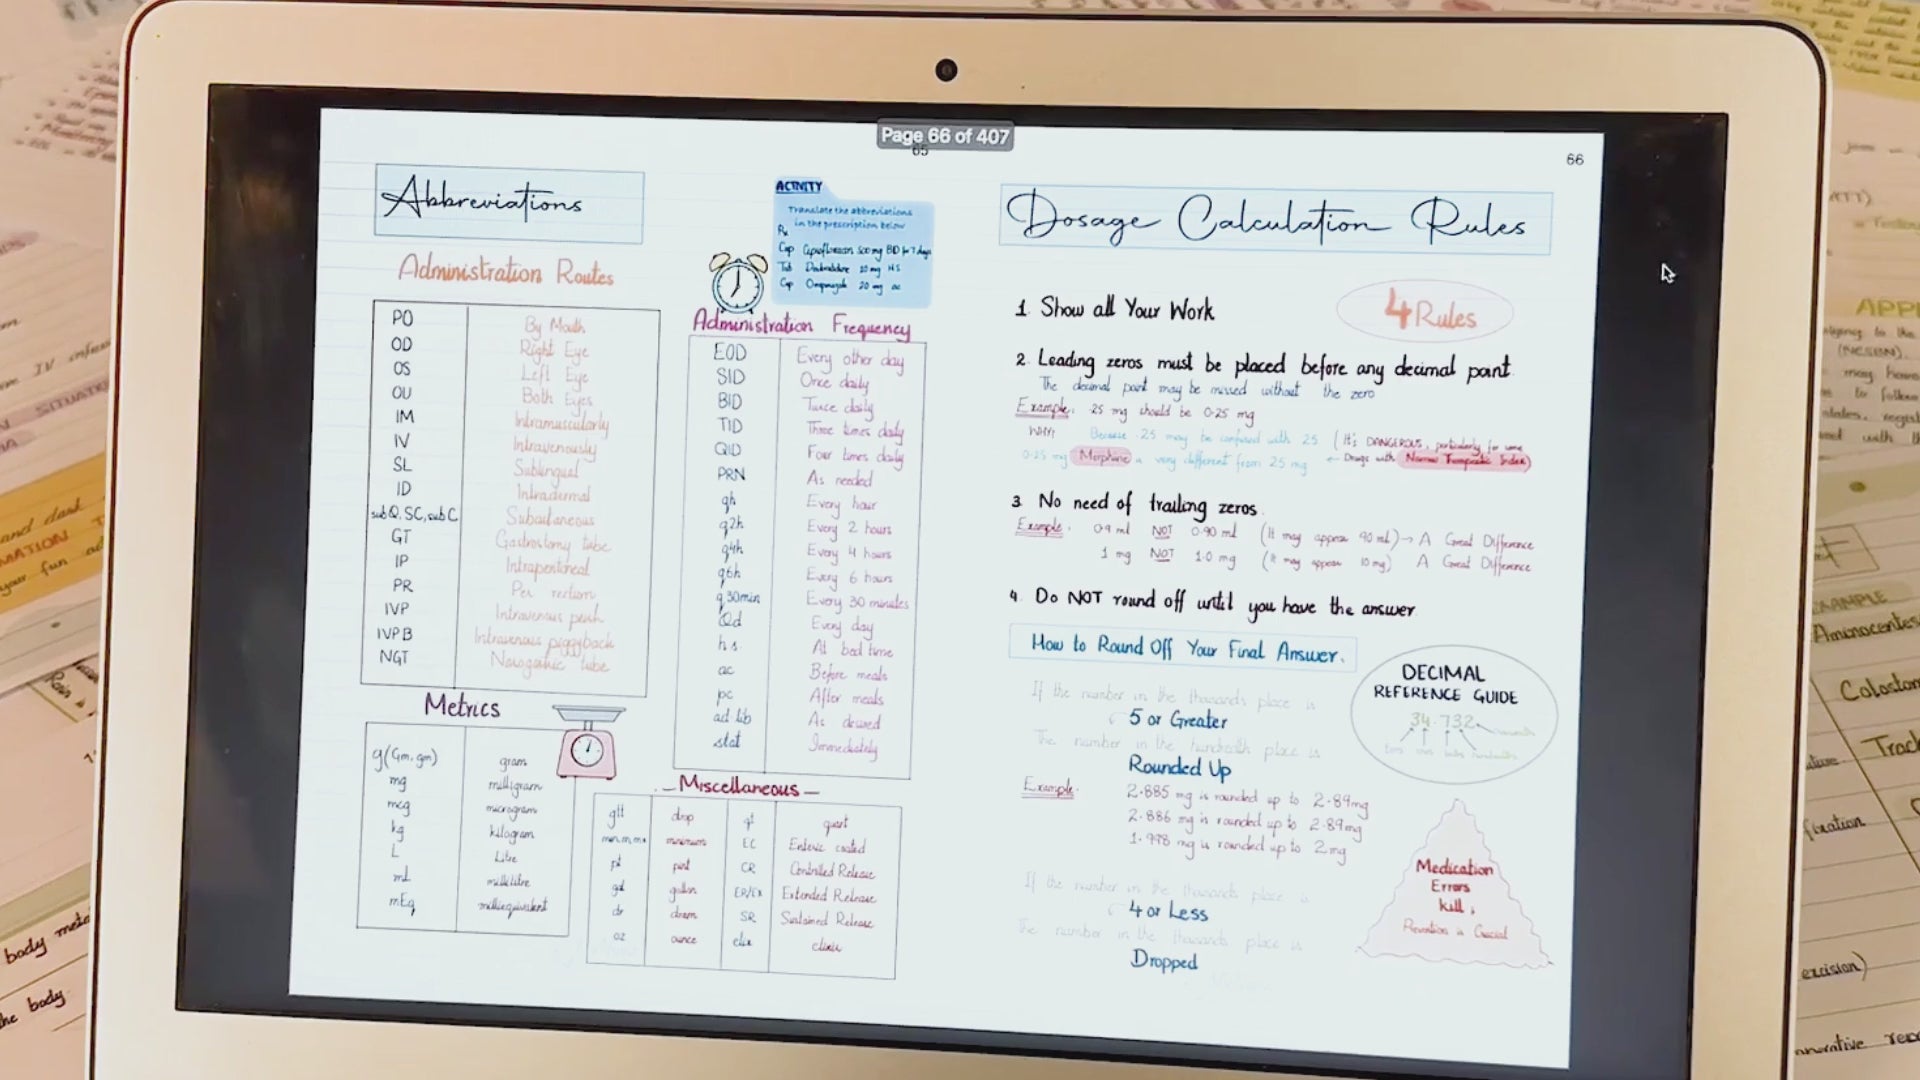 Page 66 of 407
65
66
Abbreviations
ACTIVITY
Translate the abbreviations
in the prescription below
Rx
Cap Ciprofloxacin 500 mg BD for 7 days
Tab 10 mg HS
Cap 20 mg ac
Administration Routes
PO By Mouth
OD Right Eye
OS Left Eye
OU Both Eyes
IM Intramuscularly
IV Intravenously
SL Sublingual
ID Intradermal
subQ, SC, subC Subcutaneous
GT Gastrostomy tube
IP Intraperitoneal
PR Per rectum
IVP Intravenous push
IVPB Intravenous piggyback
NGT Nasogastric tube
Metrics
g (Gm, gm) gram
mg milligram
mcg microgram
kg kilogram
L Litre
mL millilitre
mEq milliequivalent
Administration Frequency
EOD Every other day
SID Once daily
BID Twice daily
TID Three times daily
QID Four times daily
PRN As needed
qh Every hour
q2h Every 2 hours
q4h Every 4 hours
q6h Every 6 hours
q30min Every 30 minutes
Qd Every day
h.s. At bed time
ac Before meals
pc After meals
ad lib As desired
stat Immediately
Miscellaneous
gtt drop qt quart
EC Enteric coated
pt pint CR Controlled Release
gal gallon ER/EX Extended Release
dr dram SR Sustained Release
oz ounce elix elixir
Dosage Calculation Rules
4 Rules
1. Show all Your Work
2. Leading zeros must be placed before any decimal point.
The decimal point may be missed without the zero
Example. .25 mg should be 0.25 mg
WHY? Because .25 may be confused with 25 (It's DANGEROUS, particularly for some
0.25 mg Morphine is very different from 25 mg ← Drugs with Narrow Therapeutic Index)
3. No need of trailing zeros.
Example. 0.9 ml NOT 0.90 ml (It may appear 90 ml) → A Great Difference
1 mg NOT 1.0 mg (It may appear 10 mg) A Great Difference
4. Do NOT round off until you have the answer
How to Round Off Your Final Answer.
If the number in the thousands place is
5 or Greater
The number in the hundredth place is
Rounded Up
Example.
2.885 mg is rounded up to 2.89mg
2.886 mg is rounded up to 2.89mg
1.998 mg is rounded up to 2mg
If the number in the thousands place is
4 or Less
The number in the thousands place is
Dropped
DECIMAL
REFERENCE GUIDE
34.732
Medication
Errors
kill,
Prevention is Crucial
SITUATION
body
the body.
EXAMPLE
Aminocentes
excision)